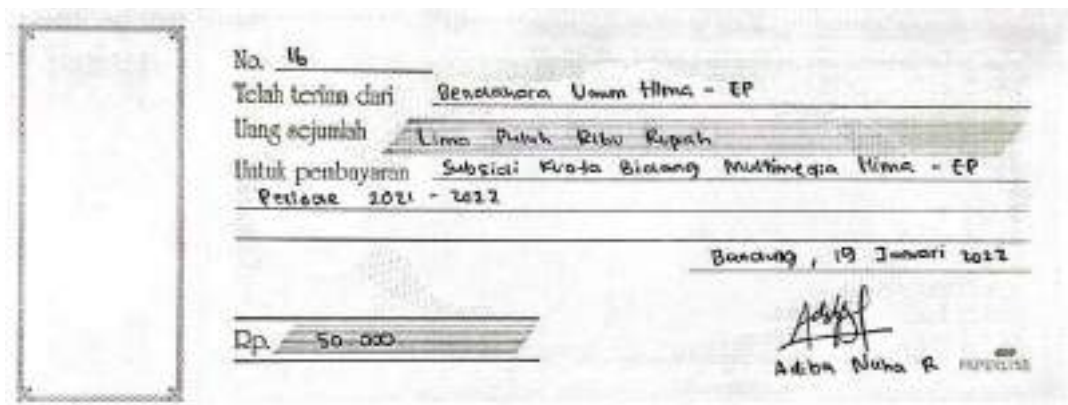 No. 16
Telah terima dari Bendahara Umum Hima - EP
Uang sejumlah Lima Puluh Ribu Rupiah
Untuk pembayaran Subsidi Kuota Bidang Multimedia Hima - EP
Periode 2021 - 2022
Bandung, 19 Januari 2022
Rp. 50.000
Adiba Nuha R
PAPERLINE